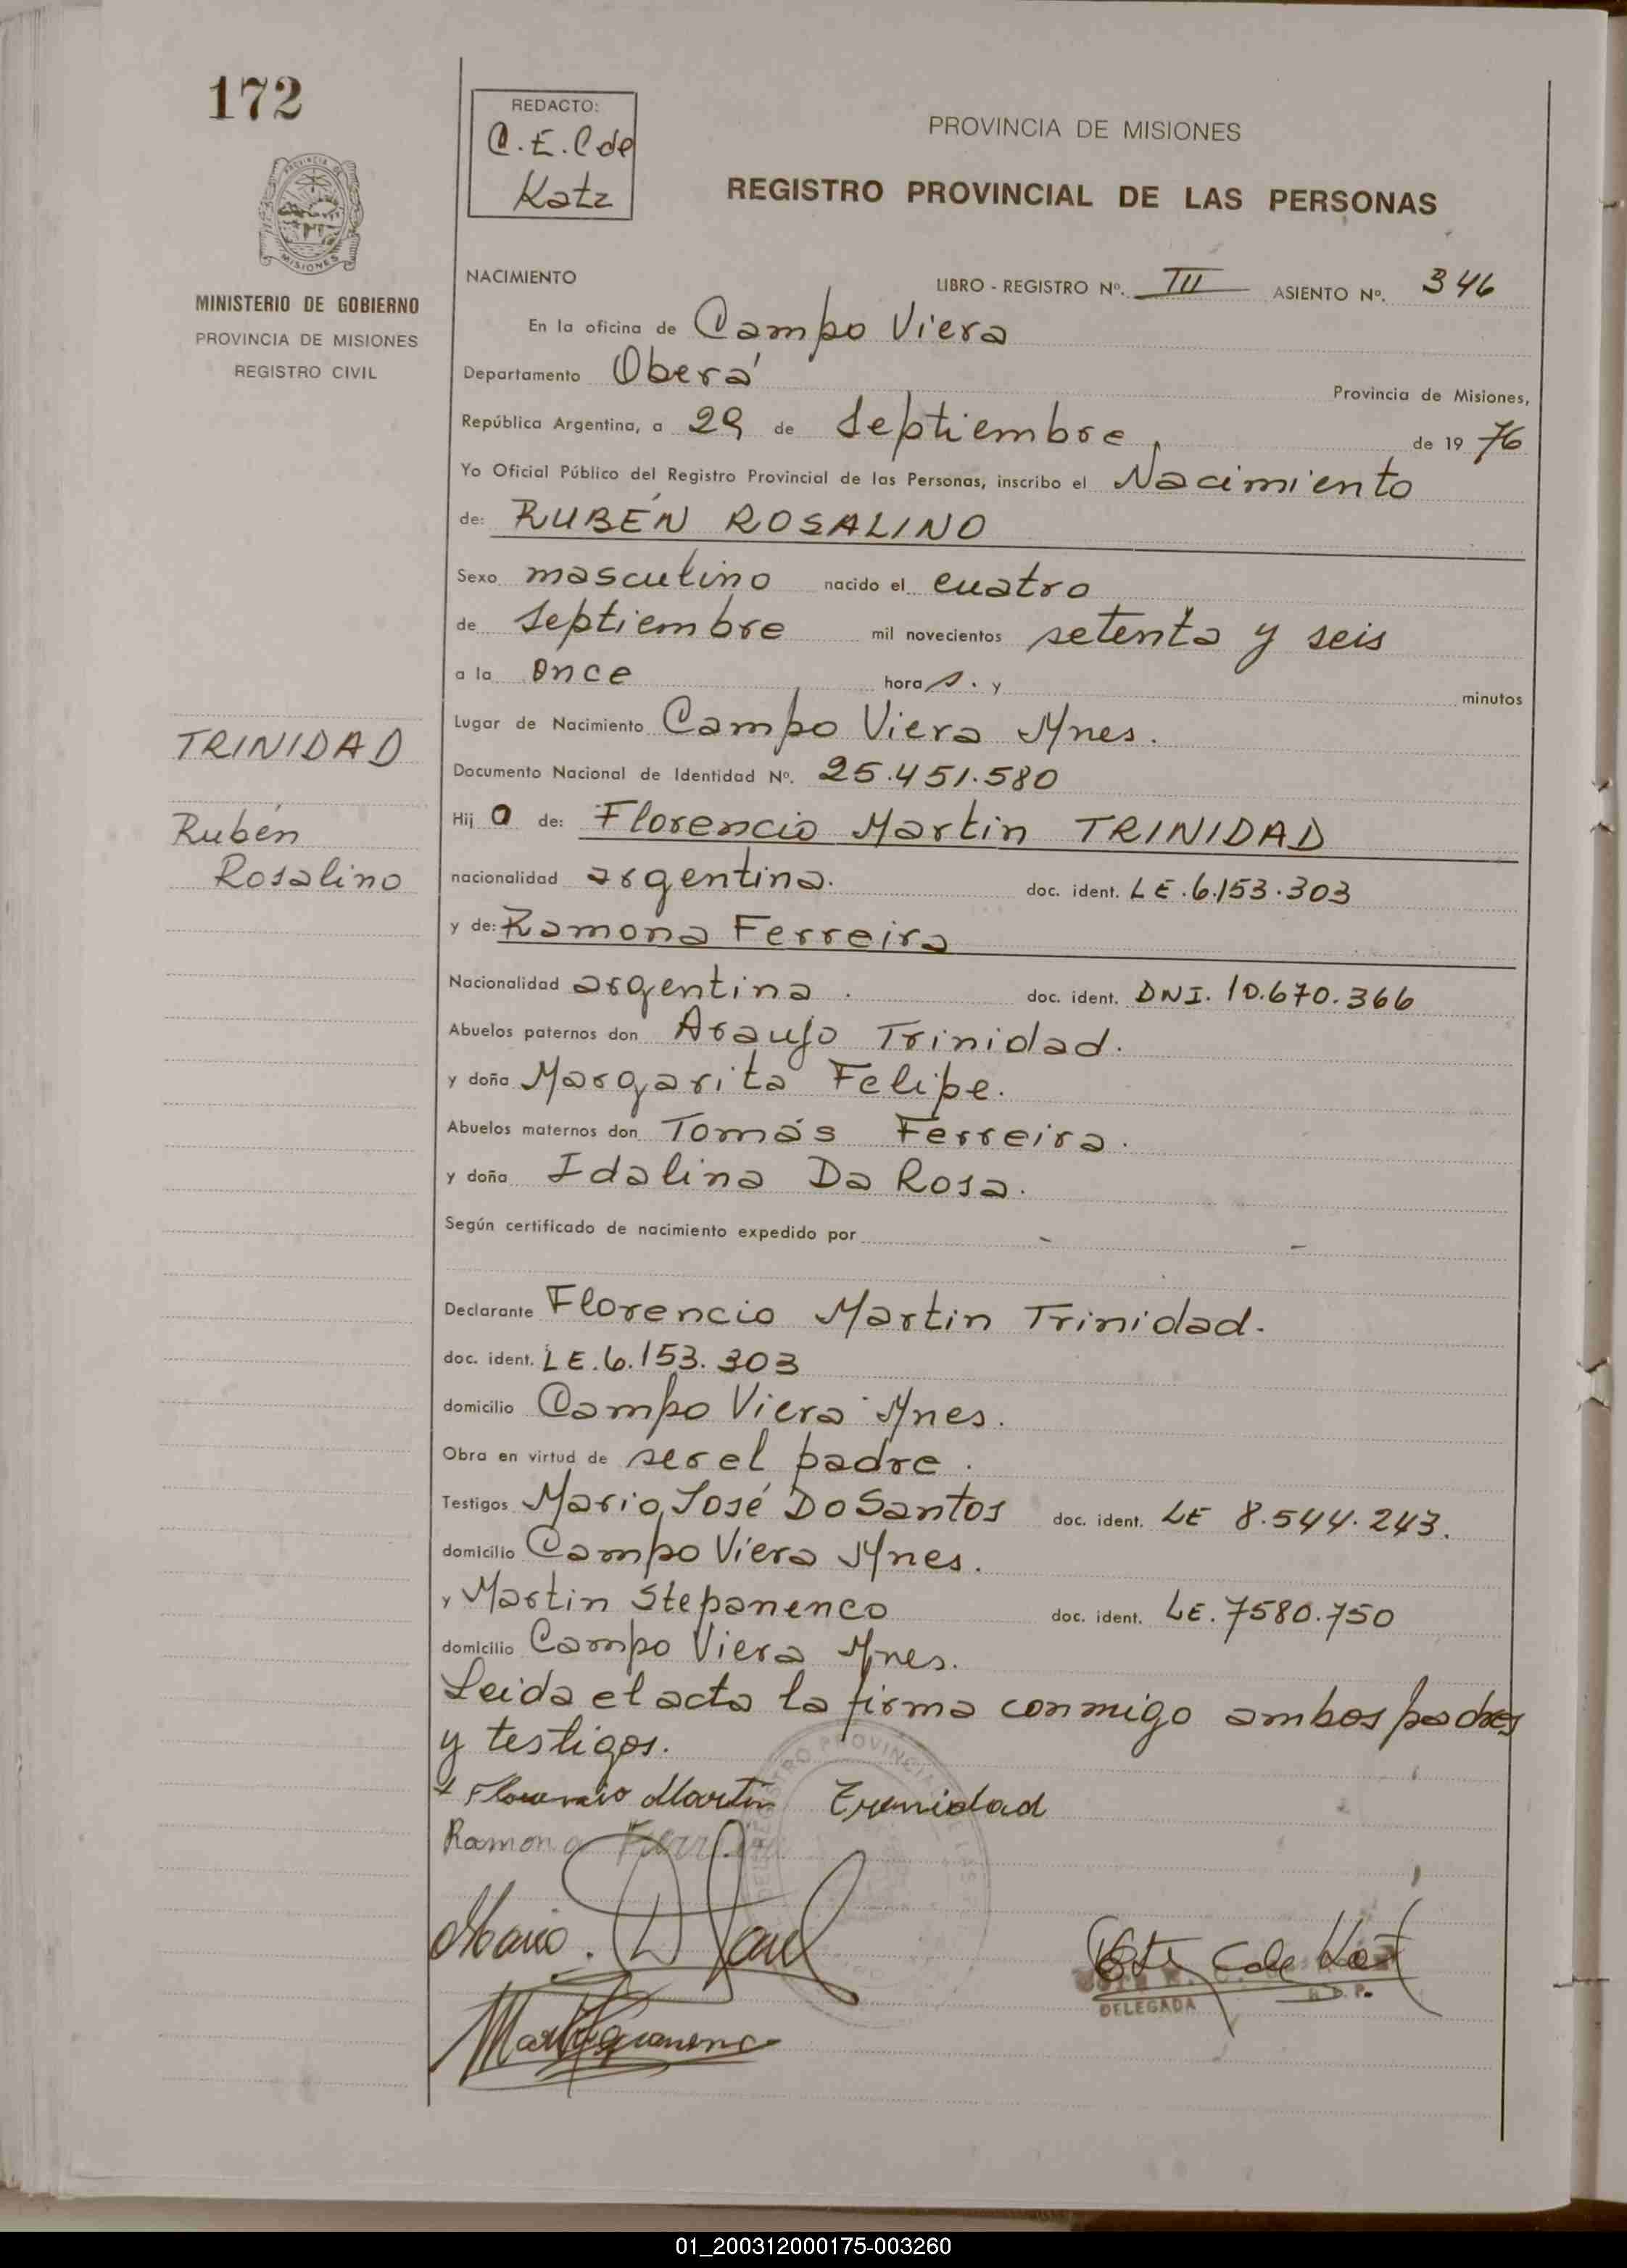 172
REDACTO:
C.E.C de
Katz
PROVINCIA DE MISIONES
REGISTRO PROVINCIAL DE LAS PERSONAS
PROVINCIA DE
MISIONES
MINISTERIO DE GOBIERNO
PROVINCIA DE MISIONES
REGISTRO CIVIL
NACIMIENTO
LIBRO - REGISTRO Nº. III ASIENTO Nº. 346
En la oficina de Campo Viera
Departamento Oberá Provincia de Misiones,
República Argentina, a 29 de Septiembre, de 1976
Yo Oficial Público del Registro Provincial de las Personas, inscribo el Nacimiento
de: RUBÉN ROSALINO
Sexo masculino nacido el cuatro
de Septiembre mil novecientos setenta y seis
a la once hora s. y minutos
Lugar de Nacimiento Campo Viera Mnes.
Documento Nacional de Identidad Nº. 25.451.580
TRINIDAD
Rubén
Rosalino
Hij o de: Florencio Martin TRINIDAD
nacionalidad argentina. doc. ident. LE.6.153.303
y de: Ramona Ferreira
Nacionalidad argentina. doc. ident. DNI. 10.670.366
Abuelos paternos don Araujo Trinidad.
y doña Margarita Felipe.
Abuelos maternos don Tomás Ferreira.
y doña Idalina Da Rosa.
Según certificado de nacimiento expedido por - -
Declarante Florencio Martin Trinidad.
doc. ident. LE.6.153.303
domicilio Campo Viera Mnes.
Obra en virtud de ser el padre.
Testigos Mario José Do Santos doc. ident. LE 8.544.243.
domicilio Campo Viera Mnes.
y Martin Stepanenco doc. ident. LE. 7580.750
domicilio Campo Viera Mnes.
Leida el acta la firma conmigo ambos padres
y testigos.
Florencio Martin Trunidad
Ramona
Mario.
DELEGADA
01_200312000175-003260